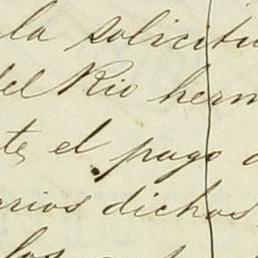 la solicitu
del Rio herm
te, el pago d
erios dichos
los